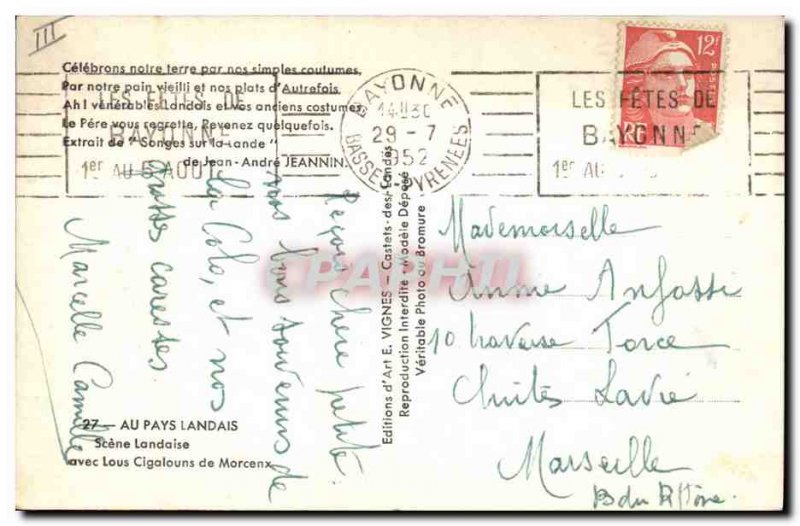 III
Célébrons notre terre par nos simples coutumes,
Par notre pain vieilli et nos plats d'Autrefois.
Ah ! vénérables Landais et vos anciens costumes,
Le Père vous regrette. Revenez quelquefois.
Extrait de "Songes sur la Lande"
de Jean-André JEANNIN.
LES FÊTES DE
BAYONNE
1er AU 5 AOUT
BAYONNE
14H30
29 - 7
1952
BASSES-PYRENEES
LES FÊTES DE
BAYONNE
1er AU
12F
Reçois chère petite
nos bons souvenirs de
la Colo, et nos
caresses.
Marcelle Camille
Editions d'Art E. VIGNES - Castets-des-Landes
Reproduction Interdite - Modèle Déposé
Véritable Photo au Bromure
CPAPHIL
Mademoiselle
Anne Anfossi
10 traverse Torce
Chutes Lavie
Marseille
B du Rhône.
27 - AU PAYS LANDAIS
Scène Landaise
avec Lous Cigalouns de Morcenx